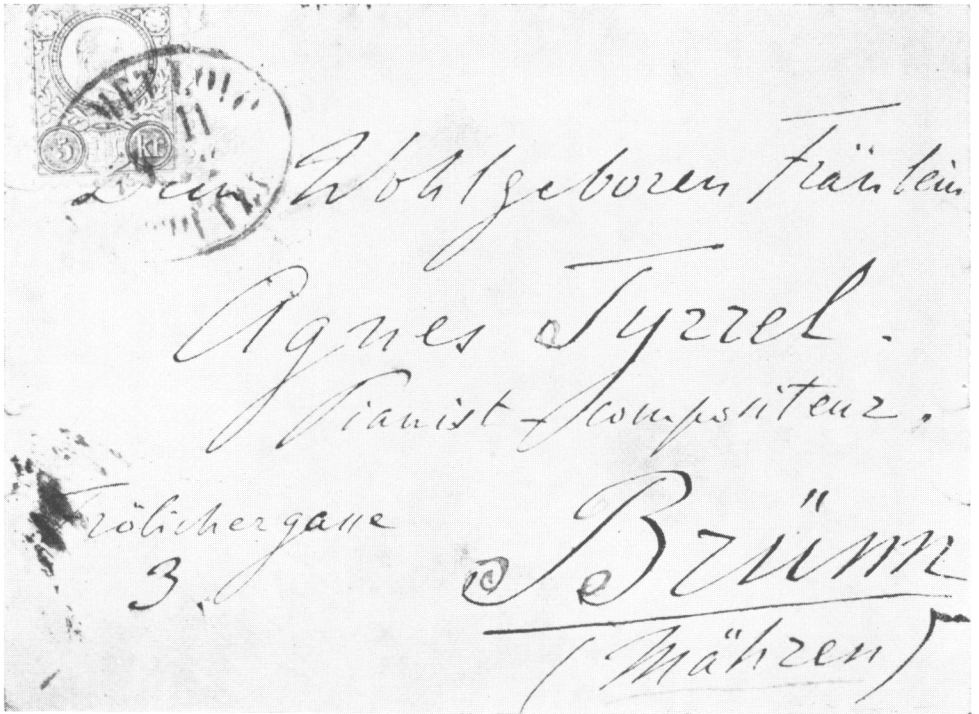 5 Kr
11
Dem Wohlgeboren Fräulein
Agnes Tyrrel.
Pianist - compositeur.
Frölichergasse
3.
Brünn
(Mähren)